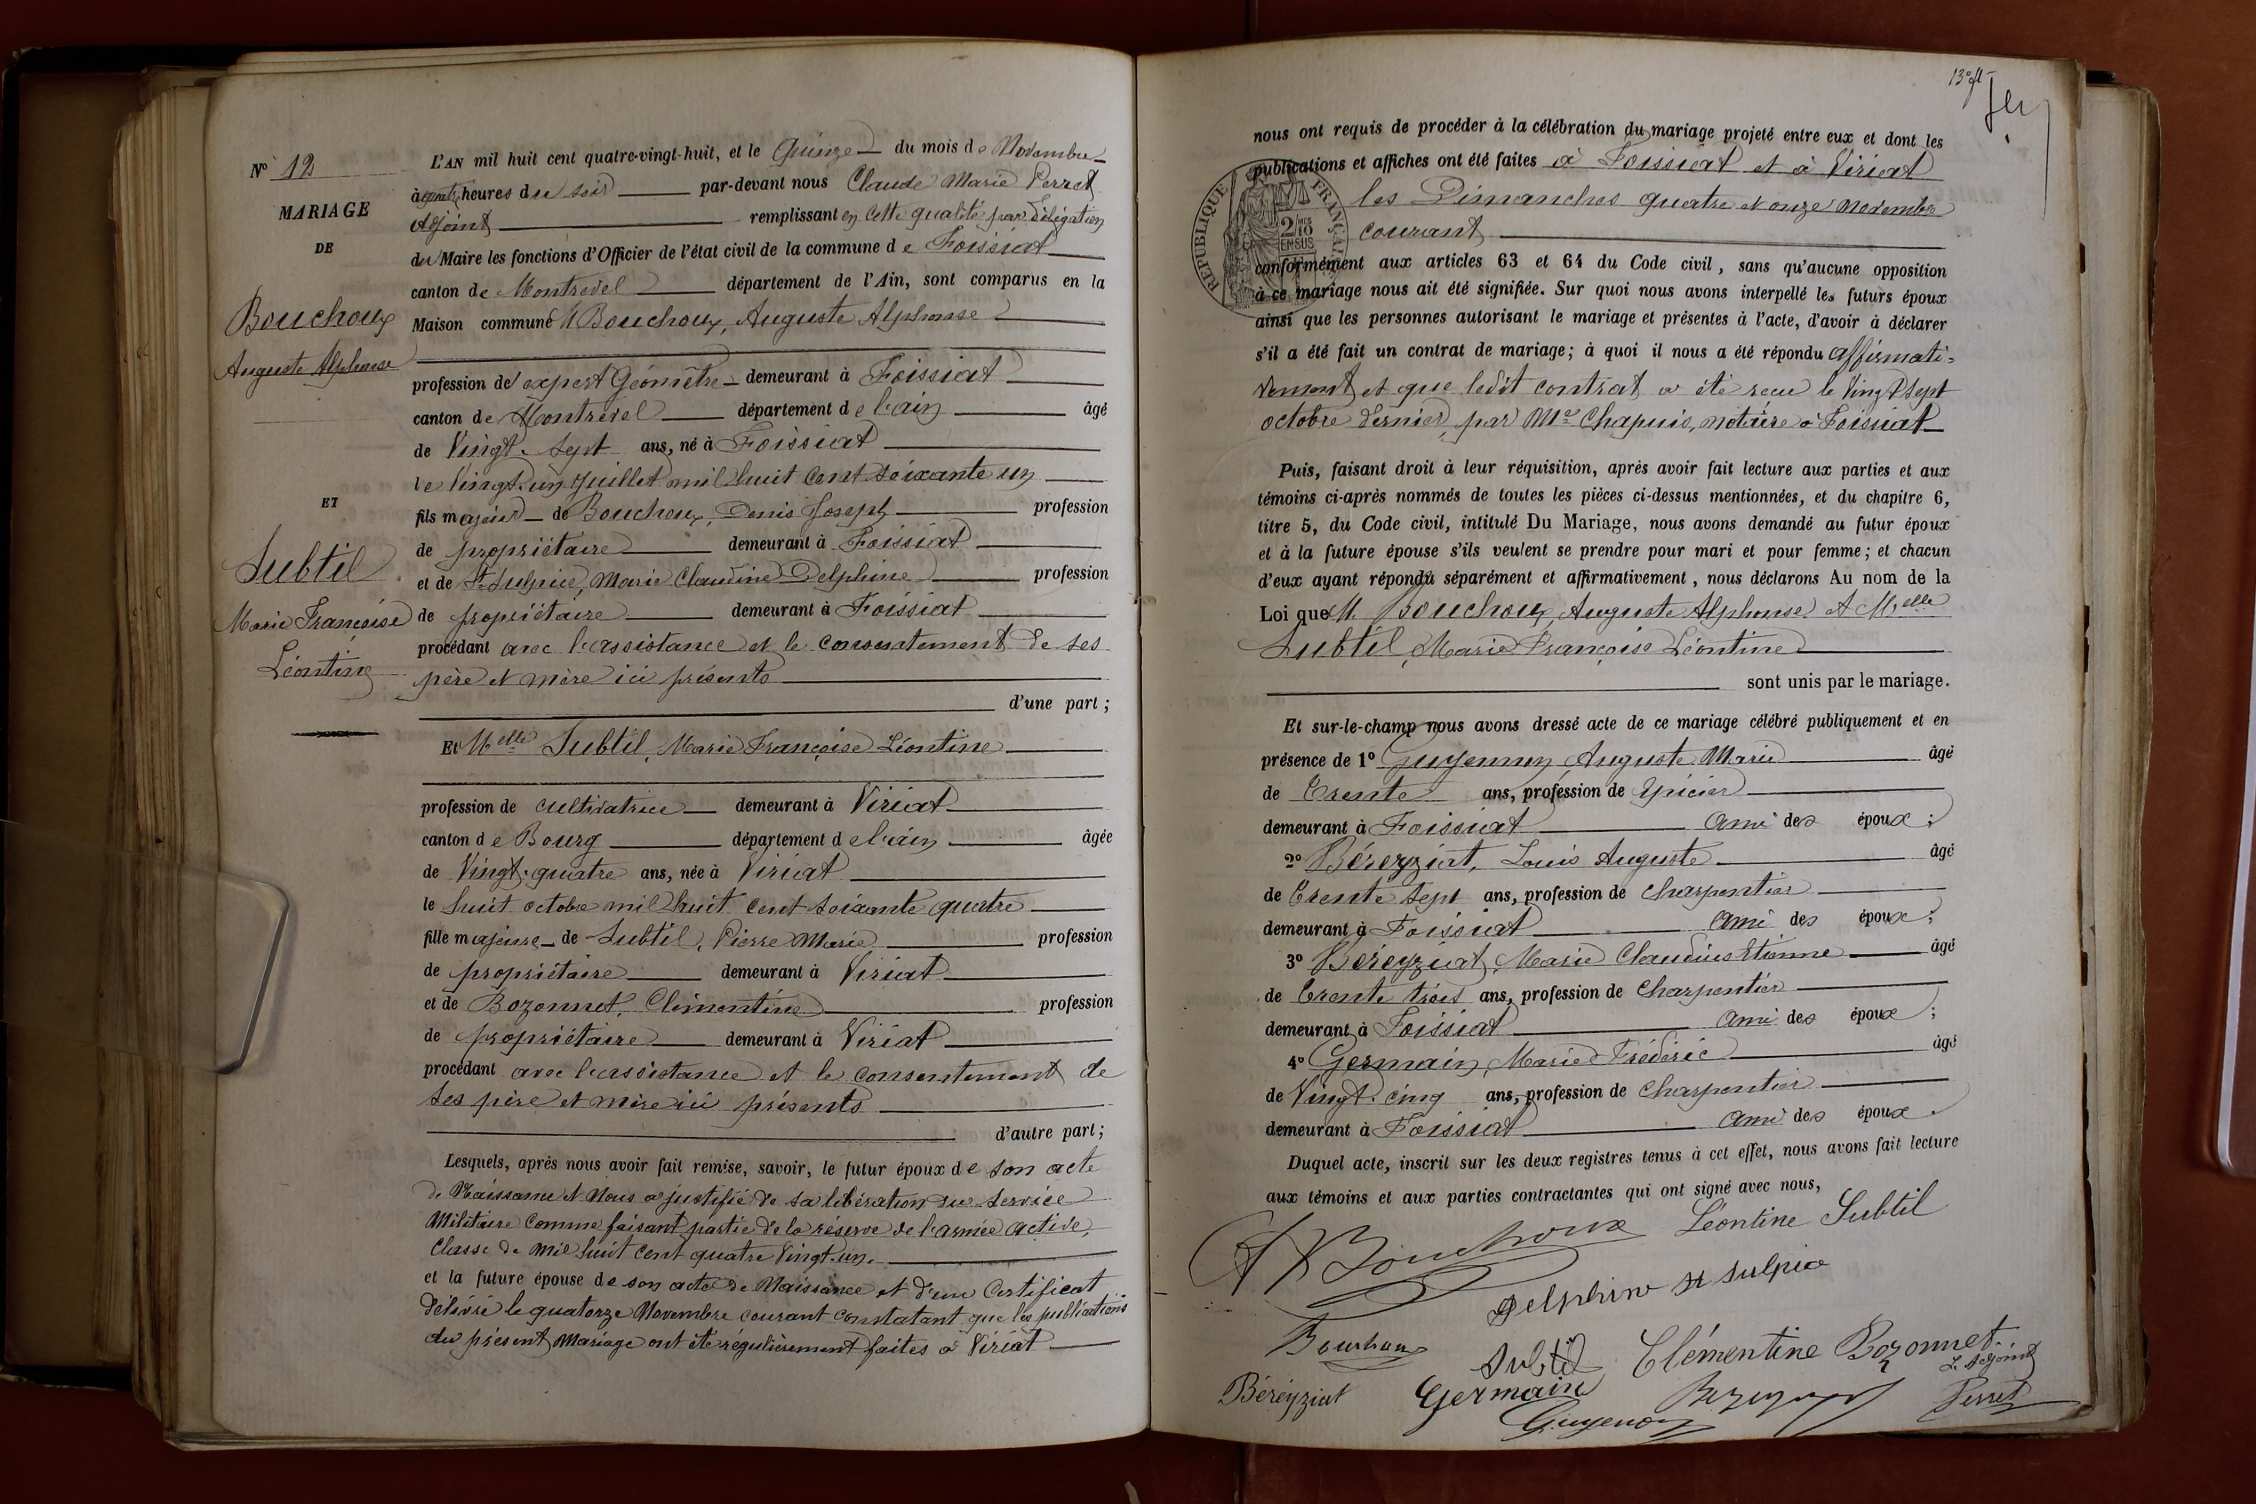 No 12
MARIAGE
DE
Bouchoux
Auguste Alphonse
ET
Subtil
Marie Françoise
Léontine
L'AN mil huit cent quatre-vingt-huit, et le Quinze du mois de Novembre
à heures du soir par-devant nous Claude Marie Perret
Adjoint remplissant en cette qualité par délégation
du Maire les fonctions d'Officier de l'état civil de la commune de Foissiat
canton de Montrevel département de l'Ain, sont comparus en la
Maison commune M Bouchoux, Auguste Alphonse
profession d'expert Géomètre demeurant à Foissiat
canton de Montrevel département de l'ain âgé
de Vingt-sept ans, né à Foissiat
le Vingt-un Juillet mil huit cent soixante un
fils majeur de Bouchoux, Denis Joseph profession
de propriétaire demeurant à Foissiat
et de St Sulpice, Marie Claudine Delphine profession
de propriétaire demeurant à Foissiat
procédant avec l'assistance et le consentement de ses
père et mère ici présents
d'une part;
Et Melle Subtil, Marie Françoise Léontine
profession de cultivatrice demeurant à Viriat
canton de Bourg département de l'ain âgée
de Vingt-quatre ans, née à Viriat
le huit octobre mil huit cent soixante quatre
fille majeure de Subtil, Pierre Marie profession
de propriétaire demeurant à Viriat
et de Bozonnet, Clémentine profession
de propriétaire demeurant à Viriat
procédant avec l'assistance et le consentement de
ses père et mère ici présents
d'autre part;
Lesquels, après nous avoir fait remise, savoir, le futur époux de son acte
de Naissance et Nous a justifié de sa libération du service
Militaire comme faisant partie de la réserve de l'armée active,
Classe de mil huit cent quatre Vingt-un.
et la future épouse de son acte de Naissance et d'un Certificat
délivré le quatorze Novembre courant constatant que les publications
du présent Mariage ont été régulièrement faites à Viriat
13e ft
nous ont requis de procéder à la célébration du mariage projeté entre eux et dont les
publications et affiches ont été faites à Foissiat et à Viriat
les Dimanches quatre et onze novembre
courant
RÉPUBLIQUE FRANÇAISE
2/10
EN SUS
conformément aux articles 63 et 64 du Code civil, sans qu'aucune opposition
à ce mariage nous ait été signifiée. Sur quoi nous avons interpellé les futurs époux
ainsi que les personnes autorisant le mariage et présentes à l'acte, d'avoir à déclarer
s'il a été fait un contrat de mariage; à quoi il nous a été répondu affirmati=
vement et que ledit contrat a été recu le Vingt sept
octobre dernier, par Me Chapuis, notaire à Foissiat
Puis, faisant droit à leur réquisition, après avoir fait lecture aux parties et aux
témoins ci-après nommés de toutes les pièces ci-dessus mentionnées, et du chapitre 6,
titre 5, du Code civil, intitulé Du Mariage, nous avons demandé au futur époux
et à la future épouse s'ils veulent se prendre pour mari et pour femme; et chacun
d'eux ayant répondu séparément et affirmativement, nous déclarons Au nom de la
Loi que M. Bouchoux, Auguste Alphonse et Melle
Subtil, Marie Françoise Léontine
sont unis par le mariage.
Et sur-le-champ nous avons dressé acte de ce mariage célébré publiquement et en
présence de 1o Auguste Marie âgé
de Trente ans, profession de Epicier
demeurant à Foissiat ami des époux;
2o Béreyziat, Louis Auguste âgé
de Trente sept ans, profession de Charpentier
demeurant à Foissiat ami des époux;
3o Béreyziat, Marie Claudius Etienne âgé
de Trente trois ans, profession de Charpentier
demeurant à Foissiat ami des époux;
4o Germain, Marie Frédéric âgé
de Vingt-cinq ans, profession de Charpentier
demeurant à Foissiat ami des époux.
Duquel acte, inscrit sur les deux registres tenus à cet effet, nous avons fait lecture
aux témoins et aux parties contractantes qui ont signé avec nous,
A Bouchoux Léontine Subtil
Delphine St Sulpice
Bouchoux Subtil Clémentine Bozonnet
L'adjoint
Béréyziat Germain Perret